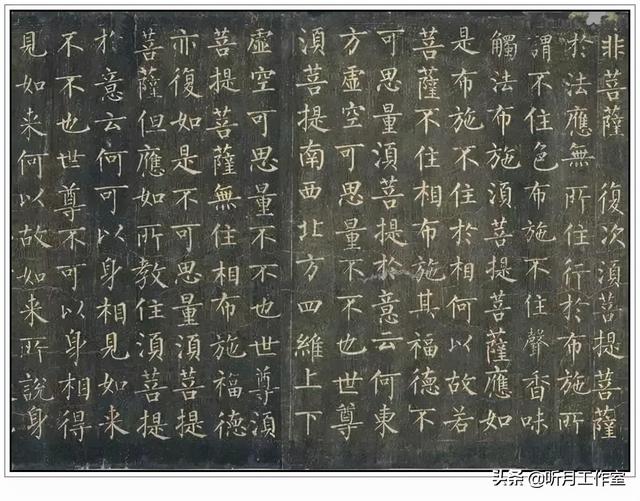 非菩薩 復次湏菩提菩薩
於法應無所住行於布施所
謂不住色布施不住聲香味
觸法布施湏菩提菩薩應如
是布施不住於相何以故若
菩薩不住相布施其福德不
可思量湏菩提於意云何東
方虛空可思量不不也世尊
湏菩提南西北方四維上下
虛空可思量不不也世尊湏
菩提菩薩無住相布施福德
亦復如是不可思量湏菩提
菩薩但應如所教住湏菩提
於意云何可以身相見如来
不不也世尊不可以身相得
見如来何以故如来所說身
头条 @听月工作室